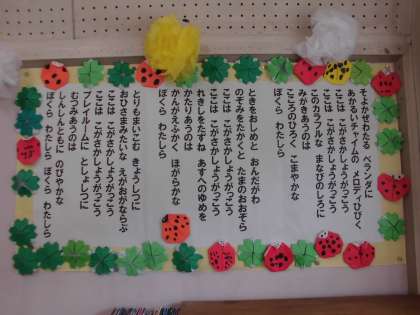 そよかぜわたる ベランダに
あかるいチャイムの メロディひびく
ここは こがさかしょうがっこう
ここは こがさかしょうがっこう
このカラフルな まなびのしろに
みがきあうのは
こころのひろく こまやかな
ぼくら わたしら
ときをおしめと おんだがわ
のぞみをたかくと たまのおおぞら
ここは こがさかしょうがっこう
ここは こがさかしょうがっこう
れきしをたずね あすへのゆめを
かたりあうのは
かんがえふかく ほがらかな
ぼくら わたしら
とりもまいこむ きょうしつに
おひさまみたいな えがおがならぶ
ここは こがさかしょうがっこう
ここは こがさかしょうがっこう
プレイルームに としょしつに
むつみあうのは
しんしんともに のびやかな
ぼくら わたしら ぼくら わたしら